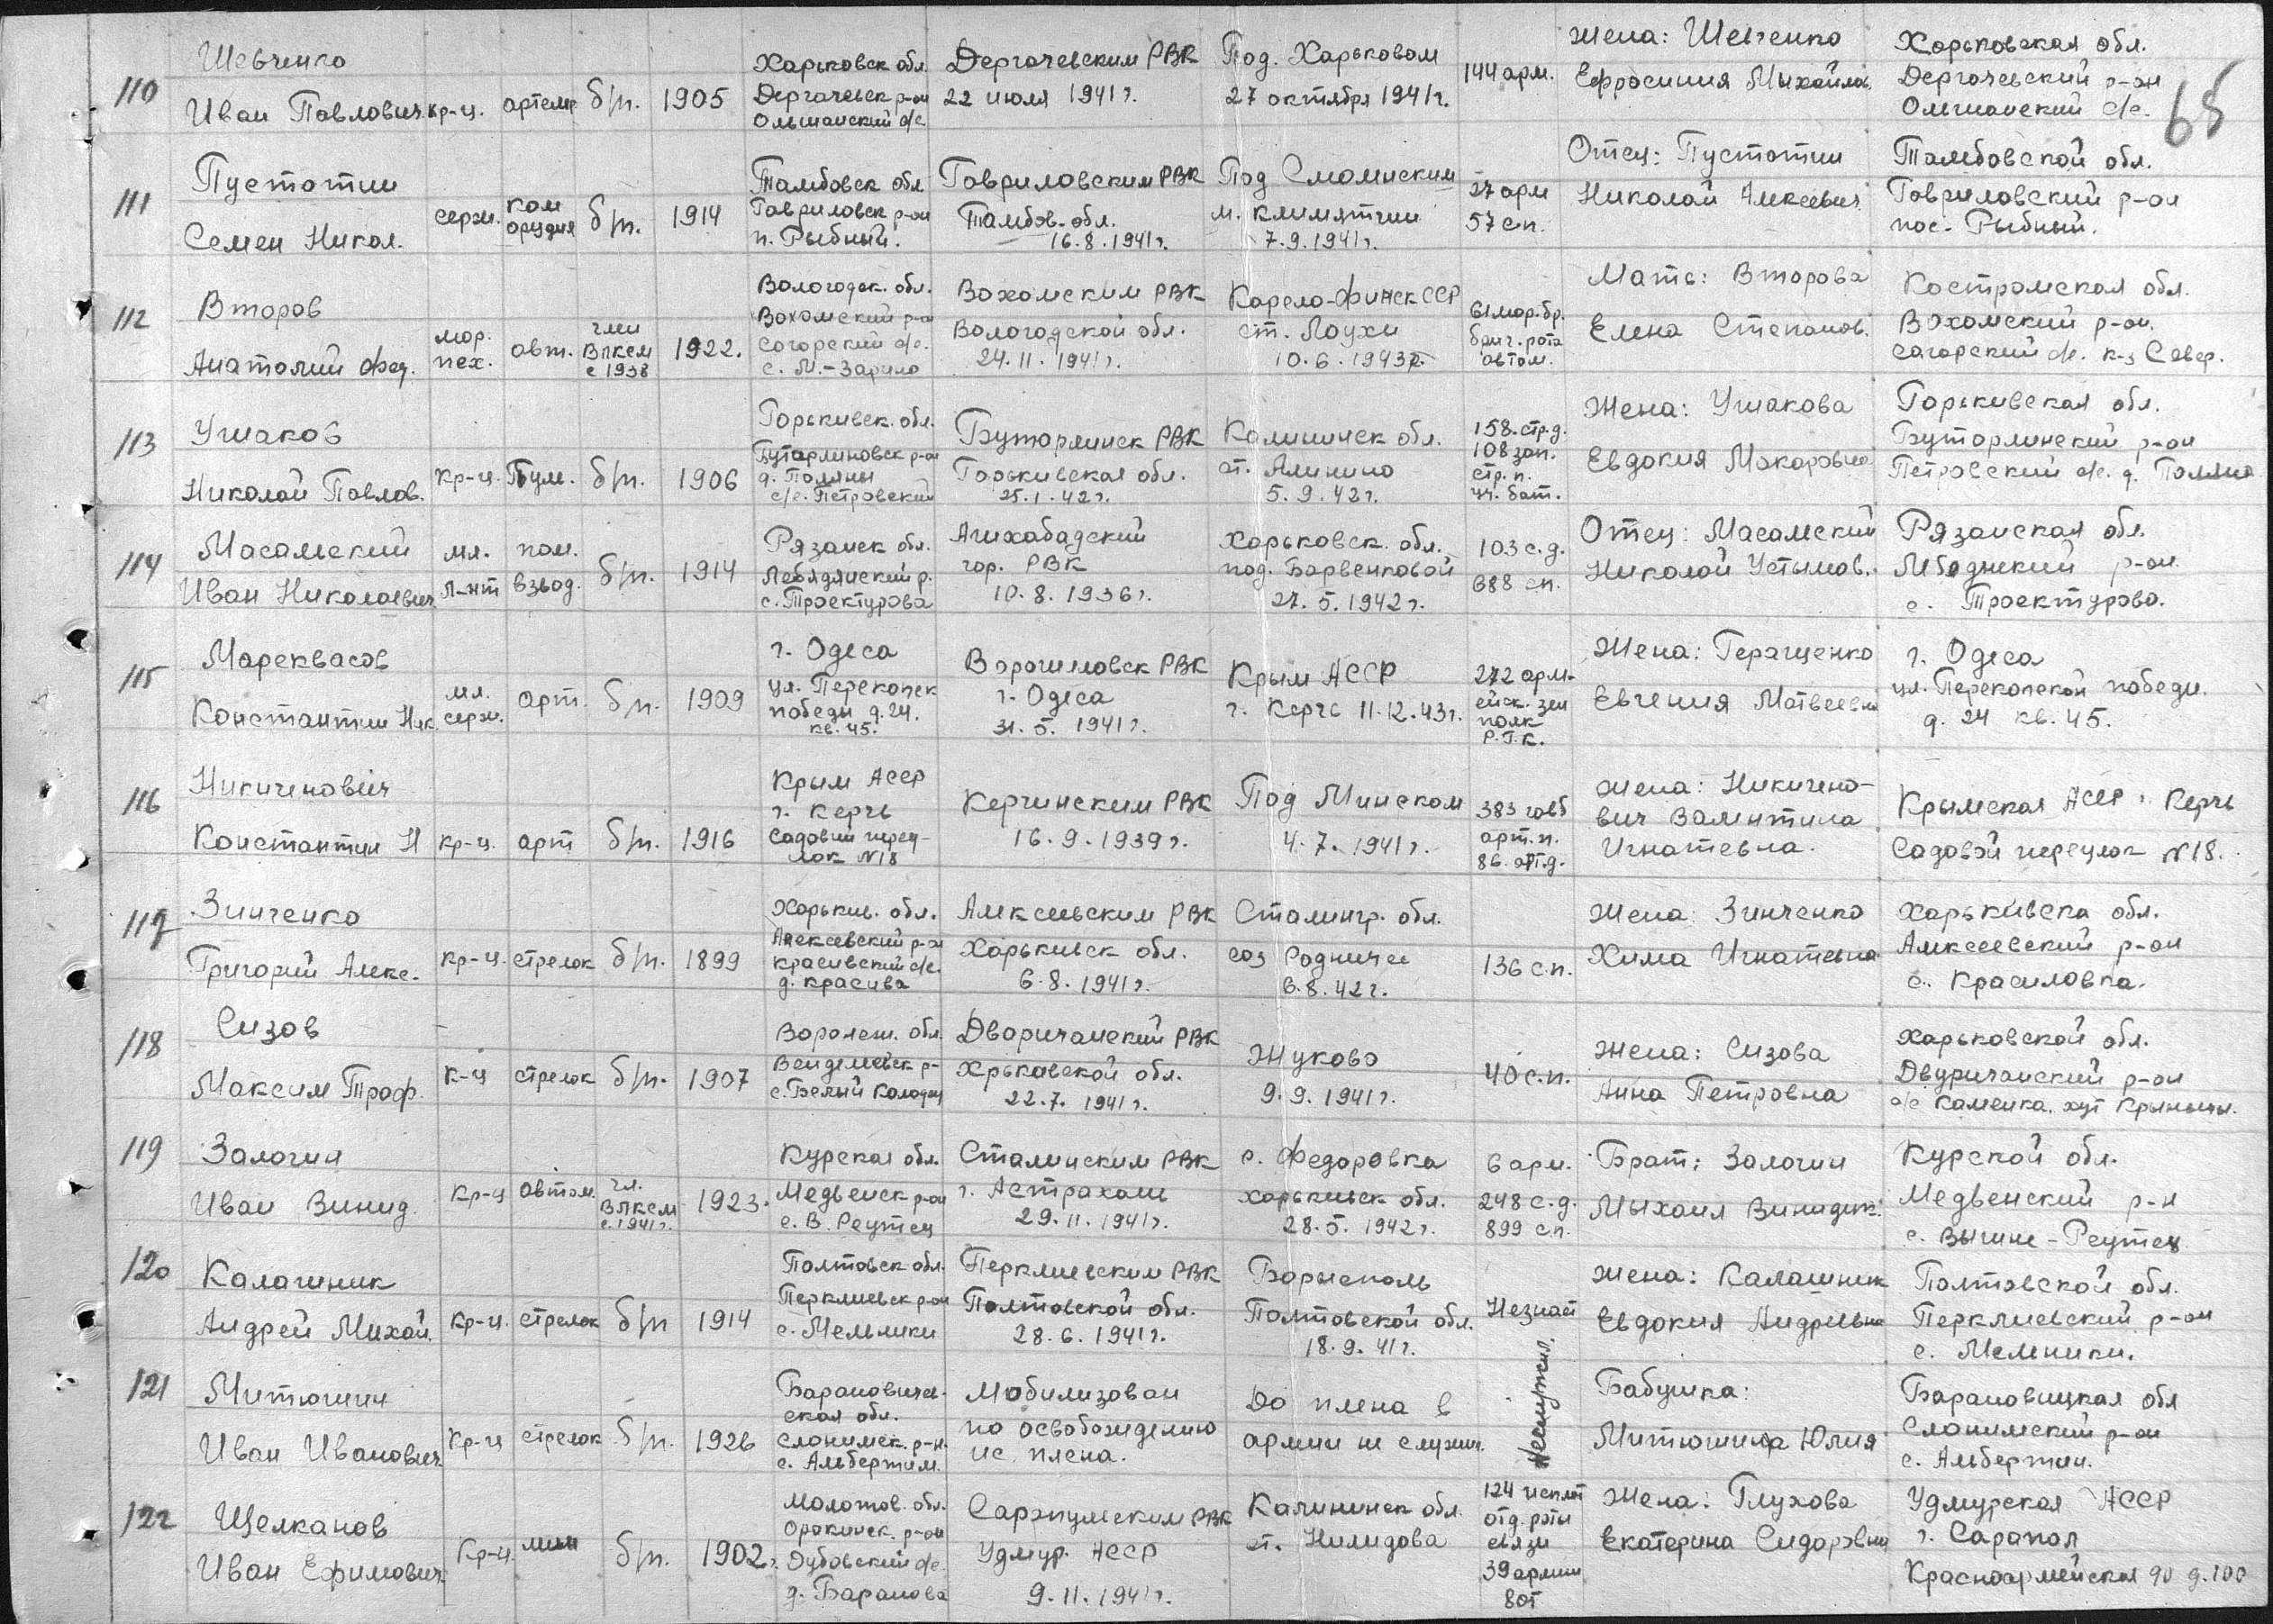 65
110 Шевченко Иван Павлович кр-ц. б/п. 1905 Харьковск обл. Дергачевск р-он Ольшанский с/с. Дергачевским РВК 22 июля 1941 г. Под. Харьковом 27 октября 1941 г. 144 арм. Жена: Шевченко Ефросиния Михайлов. Харьковская обл. Дергачевский р-он Ольшанский с/с.
111 Пустотин Семен Никол. серж. ком орудия б/п. 1914 Тамбовск обл Гавриловск р-он п. Рыбный. Гавриловским РВК Тамбов. обл. 16.8.1941 г. Под Смоленским м. Климятчин 7.9.1941 г. 27 арм 57 с.п. Отец: Пустотин Николай Алексеевич Тамбовской обл. Гавриловский р-он пос. Рыбный.
112 Второв Анатолий Фед. мор. пех. авт. член Влксм с 1938 1922. Вологодск. обл. Вохомский р-он Согорский с/с. Вохомским РВК Вологодской обл. 24.11.1941 г. Карело-Финск ССР ст. Лоухи 10.6.1943 г. 61 мор. бр. рота автом. Мать: Второва Елена Степанов. Костромская обл. Вохомский р-он. Сагорский с/с. к-з Север.
113 Ушаков Николай Павлов. кр-ц. Пул. б/п. 1906 Горькивск. обл. Бутарлиновск р-он д. Поляны с/с. Петровский Бутюрлинск РВК Горькивская обл. 25.1.42 г. Калининск обл. ст. Аленино 5.9.42 г. 158. стр.д. 108 зап. стр. п. уч. бат. Жена: Ушакова Евдокия Макаровна Горькивская обл. Бутюрлинский р-он Петровский с/с. д. Поляна
114 Масальский Иван Николаевич мл. л-нт пом. взвод. б/п. 1914 Рязанск обл. Лебядянский р. с. Троектурова Ашхабадский гор. РВК 10.8.1936 г. Харьковск. обл. под. Барвенковой 27.5.1942 г. 103 с.д. 688 сп. Отец: Масалский Николай Устынов. Рязанская обл. р-он. с. Троектурово.
115 Мареквасов Константин Ник. мл. серж. арт. б/п. 1909 г. Одеса ул. Перекопск победы д. 24. кв. 45. Ворошиловск РВК г. Одеса 31.5.1941 г. Крым АССР г. Керчь 11.12.43 г. 272 арм- ейск. зен полк Р.Г.К. Жена: Геращенко Евгения Матвеевна г. Одеса ул. Перекопской победы. д. 24 кв. 45.
116 Никиченович Константин И кр-ц. арт б/п. 1916 Крым АССР г. Керчь Садовий переу- лок №18 Керчинским РВК 16.9.1939 г. Под Минском 4.7.1941 г. 383 гауб арт. п. 86. Жена: Никичено- вич Валентина Игнатевна. Крымская АССР г Керчь Садовой переулок №18.
117 Зинченко Григорий Алекс. кр-ц. стрелок б/п. 1899 Харькив. обл. Алексевский р-он красивский с/с. д. красива Алексеевским РВК Харькивск обл. 6.8.1941 г. Сталингр. обл. 6.8.42 г. 136 с.п. Жена: Зинченко Хима Игнатевна Харькивска обл. Алексеевский р-он с. Красиловка.
118 Сизов Максим Троф. к-ц стрелок б/п. 1907 Воронеж. обл. Вейделевск р- с. Белый Колодец Дворичанский РВК Хрьковской обл. 22.7.1941 г. Жуково 9.9.1941 г. 40 с.п. Жена: Сизова Анна Петровна Харьковской обл. Двуричанский р-он с/с Каменка. хут Крыницы.
119 Залогин Иван Винид. кр-ц автом. чл. Влксм с. 1941 г. 1923. Курская обл. Медвенск р-он с. В. Реутец Сталинским РВК г. Астрахань 29.11.1941 г. с. Федоровка харькивск обл. 28.5.1942 г. 6 арм. 248 с.д. 899 с.п. Брат: Залогин Мыхаил Винидик. Курской обл. Медвенский р-н с. Вышне-Реутец
120 Калашник Андрей Михай. кр-ц. стрелок б/п 1914 Полтовск обл. Перклиевск р-он с. Мельники Перклиевским РВК Полтовской обл. 28.6.1941 г. Борысполь Полтовской обл. 18.9.41 г. Незнает Жена: Калашник Евдокия Андреевна Полтовской обл. Перклиевский р-он с. Мелники.
121 Митюшин Иван Иванович кр-ц стрелок б/п. 1926 Барановичев- ская обл. Слонимск. р-н. с. Альбертин. Мобилизован по освобождению ис плена. До плена в армии не служил. Неслужил. Бабушка: Митюшина Юлия Барановицкая обл Слонимский р-он с. Альбертин.
122 Щелканов Иван Ефимович Кр-ц. мин б/п. 1902 г. Молотов. обл. р-он Дубовский с/с. д. Баранова Сарапульским РВК Удмур. АССР 9.11.1941 г. Калининск обл. ст. Нилидова 124 отд. роты связи 39 армии Жена: Глухова Екатерина Сидоровна Удмурская АССР г. Сарапол Красноармейская 90 д. 100